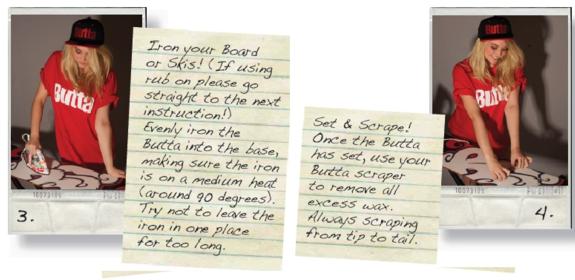 Butta
Butta
3.
Iron your Board
or Skis! (If using
rub on please go
straight to the next
instruction!)
Evenly iron the
Butta into the base,
making sure the iron
is on a medium heat
(around 90 degrees).
Try not to leave the
iron in one place
for too long.
Set & Scrape!
Once the Butta
has set, use your
Butta scraper
to remove all
excess wax.
Always scraping
from tip to tail.
Butta
Butta
4.